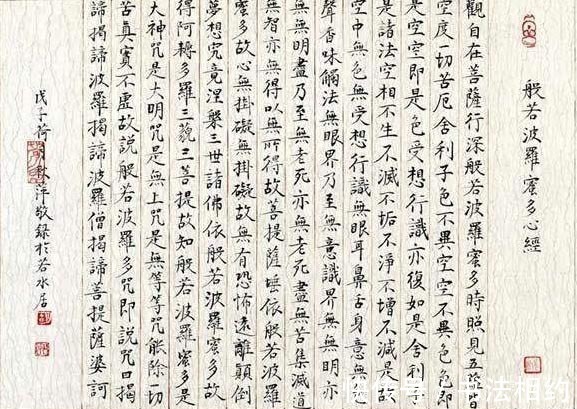 般若波羅蜜多心經
觀自在菩薩行深般若波羅蜜多時照見五蘊皆
空度一切苦厄舍利子色不異空空不異色色即
是空空即是色受想行識亦復如是舍利子
是諸法空相不生不滅不垢不淨不增不減是故
空中無色無受想行識無眼耳鼻舌身意無色
聲香味觸法無眼界乃至無意識界無無明亦
無無明盡乃至無老死亦無老死盡無苦集滅道
無智亦無得以無所得故菩提薩埵依般若波羅
蜜多故心無掛礙無掛礙故無有恐怖遠離顛倒
夢想究竟涅槃三世諸佛依般若波羅蜜多故
得阿耨多羅三藐三菩提故知般若波羅蜜多是
大神咒是大明咒是無上咒是無等等咒能除一切
苦真實不虛故說般若波羅蜜多咒即說咒曰揭
諦揭諦波羅揭諦波羅僧揭諦菩提薩婆訶
戊子荷 秋萍敬録於若水居
书法相约